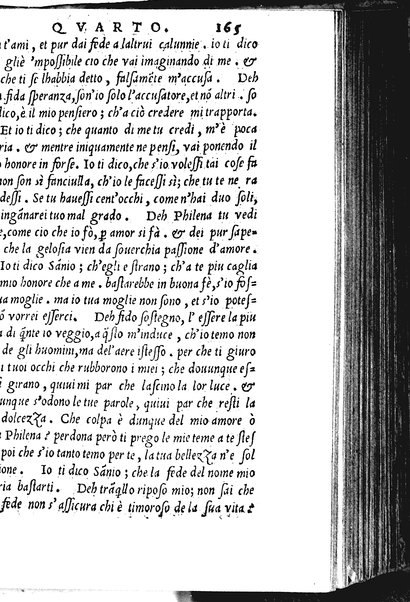 QVARTO. 165
i t'ami, et pur dai fede a laltrui calunnie. io ti dico
gliè 'mpossibile cio che vai imaginando di me. &
che ti se lhabbia detto, falsamẽte m'accusa. Deh
fida speranza, son'io solo l'accusatore, et nõ altri. so
dico, è il mio pensiero; ch'a ciò credere mi trasporta.
Et io ti dico; che quanto di me tu credi, m'è poca
ria. & mentre iniquamente ne pensi, vai ponendo il
honore in forse. Io ti dico, che s'io volessi tai cose fa
non son sì fanciulla, ch'io le facessi sì; che tu te ne ra
dessi. Se tu hauessi cent'occhi, come n'hai duo soli,
ingãnarei tuo mal grado. Deh Philena tu vedi
e, come cio che io fò, ꝑ amor si fà. & dei pur sape-
che la gelosia vien da souerchia passione d'amore.
Io ti dico Sãnio; ch'egli è strano; ch'a te piu caglia
mio honore che a me. bastarebbe in buona fè, s'io fos-
ua moglie. ma io tua moglie non sono, et s'io potes-
ò vorrei esserci. Deh fido sostegno, l'essere la piu
a di q̃nte io veggio, a q̃sto m'induce, ch'io temo non
de gli huomini, ma del'aere istesso. per che ti giuro
i tuoi occhi che rubborono i miei; che douunque es-
i girano, quiui mi par che lascino la lor luce. &
unque s'odono le tue parole, quiui par che resti la
dolcezza. Che colpa è dunque del mio amore ò
Philena? perdona però ti prego le mie teme a te stes
poi che s'io tanto temo per te, la tua bellezza n'e sol
ione. Io ti dico Sãnio; che la fede del nome mio
ria bastarti. Deh trãqllo riposo mio; non sai che
fede non s'assicura chi è timoroso de la sua vita?